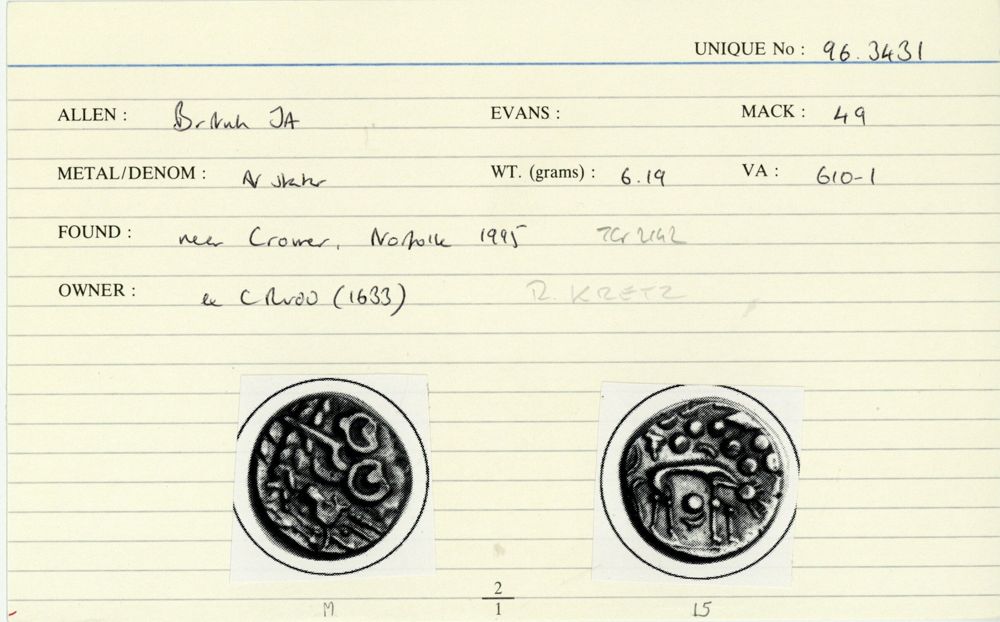 UNIQUE No : 96.3431
ALLEN : British JA EVANS : MACK : 49
METAL/DENOM : AV stater WT. (grams) : 6.19 VA : 610-1
FOUND : near Cromer, Norfolk 1995
OWNER : ex C Rudd (1633) R. KRETZ
2
M 1 15